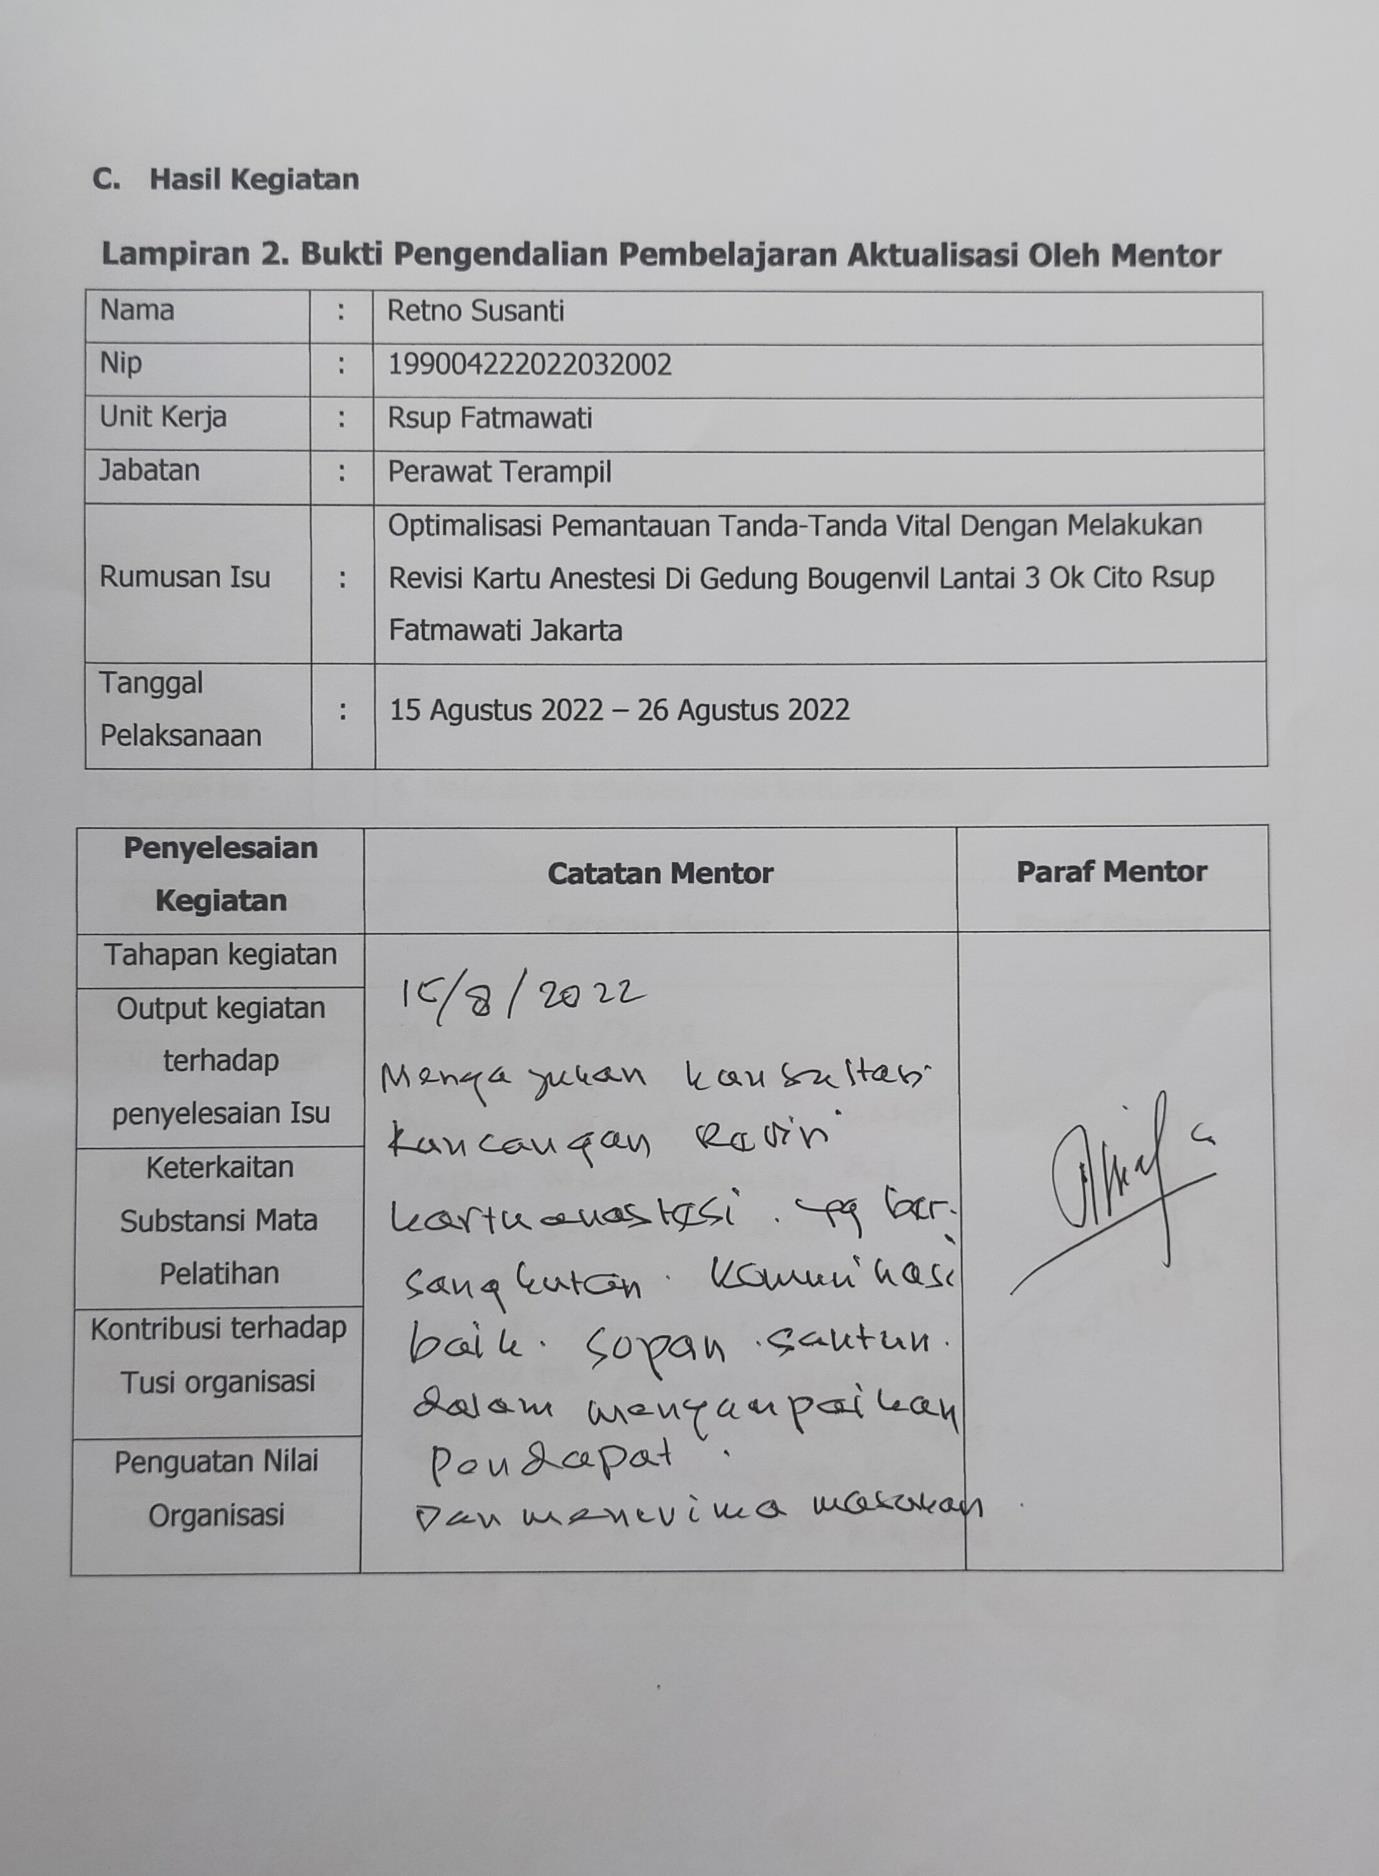 C. Hasil Kegiatan
Lampiran 2. Bukti Pengendalian Pembelajaran Aktualisasi Oleh Mentor
Nama : Retno Susanti
Nip : 199004222022032002
Unit Kerja : Rsup Fatmawati
Jabatan : Perawat Terampil
Rumusan Isu : Optimalisasi Pemantauan Tanda-Tanda Vital Dengan Melakukan
Revisi Kartu Anestesi Di Gedung Bougenvil Lantai 3 Ok Cito Rsup
Fatmawati Jakarta
Tanggal
Pelaksanaan : 15 Agustus 2022 – 26 Agustus 2022
Penyelesaian
Kegiatan
Catatan Mentor
Paraf Mentor
Tahapan kegiatan
Output kegiatan
terhadap
penyelesaian Isu
Keterkaitan
Substansi Mata
Pelatihan
Kontribusi terhadap
Tusi organisasi
Penguatan Nilai
Organisasi
15/8/2022
Mengajukan konsultasi
Rancangan Revisi
kartu anastesi . yg ber-
sangkutan . Komunikasi
baik . sopan . santun .
dalam menyampaikan
Pendapat .
Dan menerima masukan .